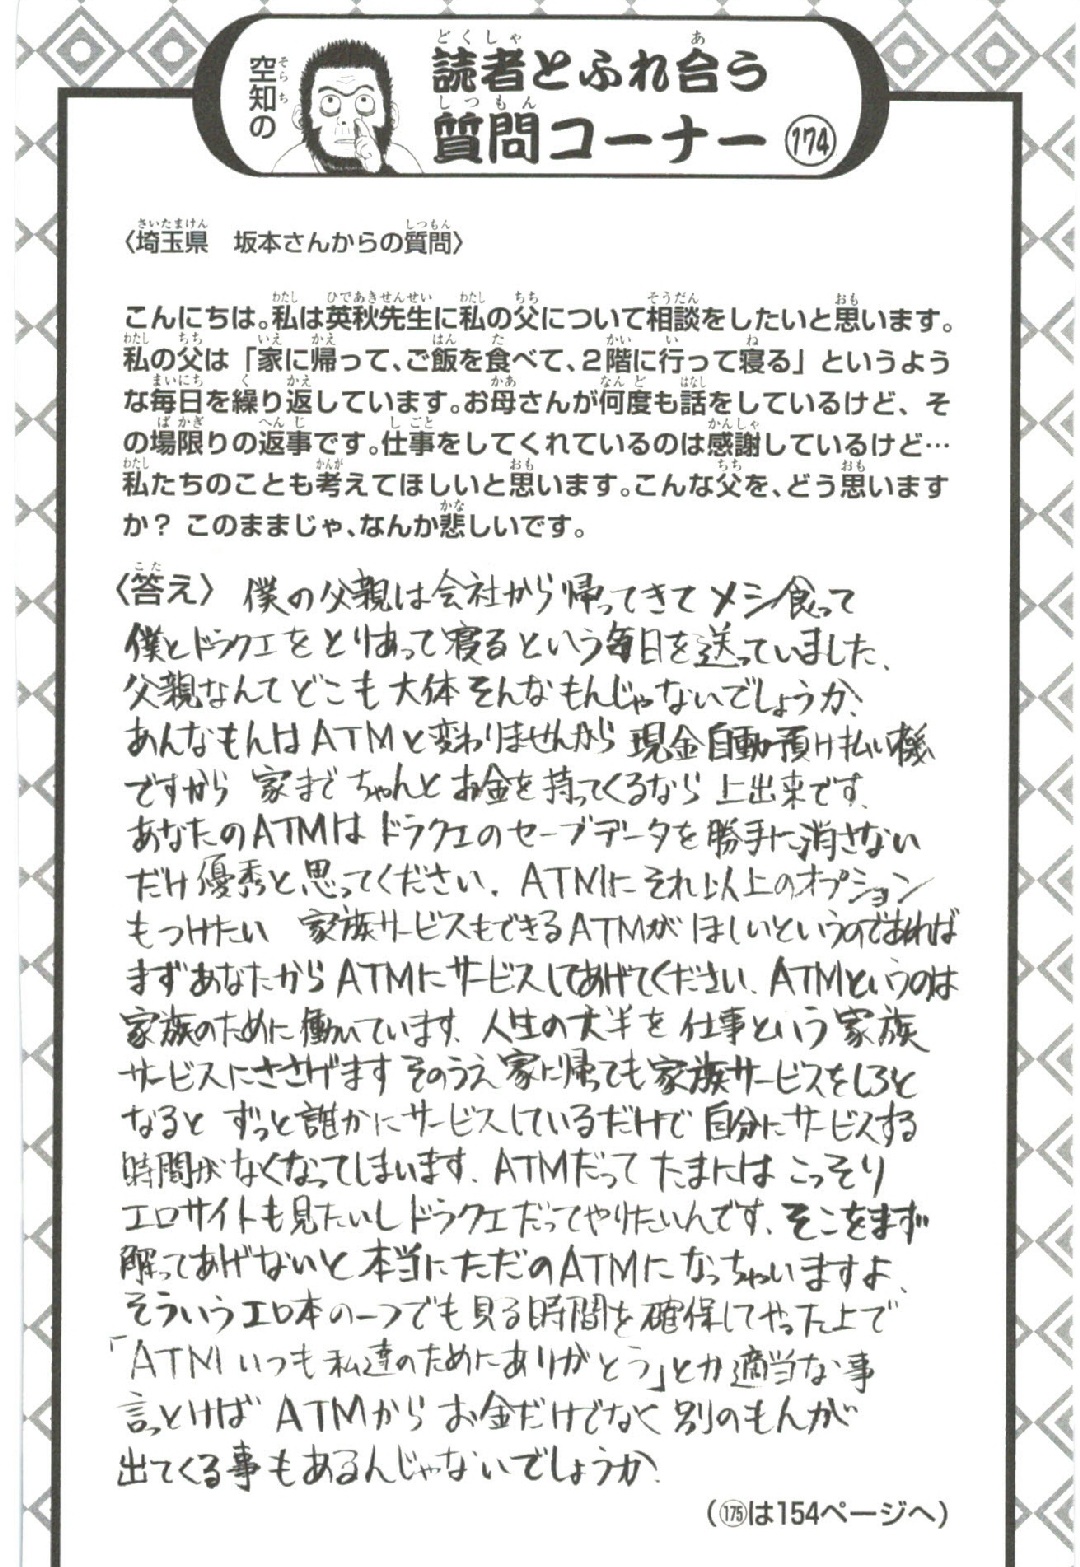 空知の
読者とふれ合う
質問コーナー 174
〈埼玉県 坂本さんからの質問〉
こんにちは。私は英秋先生に私の父について相談をしたいと思います。
私の父は「家に帰って、ご飯を食べて、2階に行って寝る」というよう
な毎日を繰り返しています。お母さんが何度も話をしているけど、そ
の場限りの返事です。仕事をしてくれているのは感謝しているけど…
私たちのことも考えてほしいと思います。こんな父を、どう思います
か? このままじゃ、なんか悲しいです。
〈答え〉 僕の父親は会社から帰ってきてメシ食って
僕とドラクエをとりあって寝るという毎日を送っていました、
父親なんてどこも大体そんなもんじゃないでしょうか、
あんなもんはATMと変わりませんから 現金自動預け払い機
ですから 家までちゃんとお金を持ってくるなら上出来です、
あなたのATMはドラクエのセーブデータを勝手に消さない
だけ優秀と思ってください、ATMにそれ以上のオプション
もつけたい 家族サービスもできるATMがほしいというのであれば
まずあなたからATMにサービスしてあげてください、ATMというのは
家族のために働いています、人生の大半を仕事という家族
サービスにささげます そのうえ家に帰っても家族サービスをしろと
なると ずっと誰かにサービスしているだけで自分にサービスする
時間がなくなってしまいます、ATMだって たまには こっそり
エロサイトも見たいしドラクエだってやりたいんです、そこをまず
解ってあげないと本当にただのATMになっちゃいますよ、
そういうエロ本の一つでも見る時間を確保してやった上で
「ATMいつも私達のためにありがとう」とか適当な事
言っとけば ATMからお金だけでなく別のもんが
出てくる事もあるんじゃないでしょうか、
(175は154ページへ)